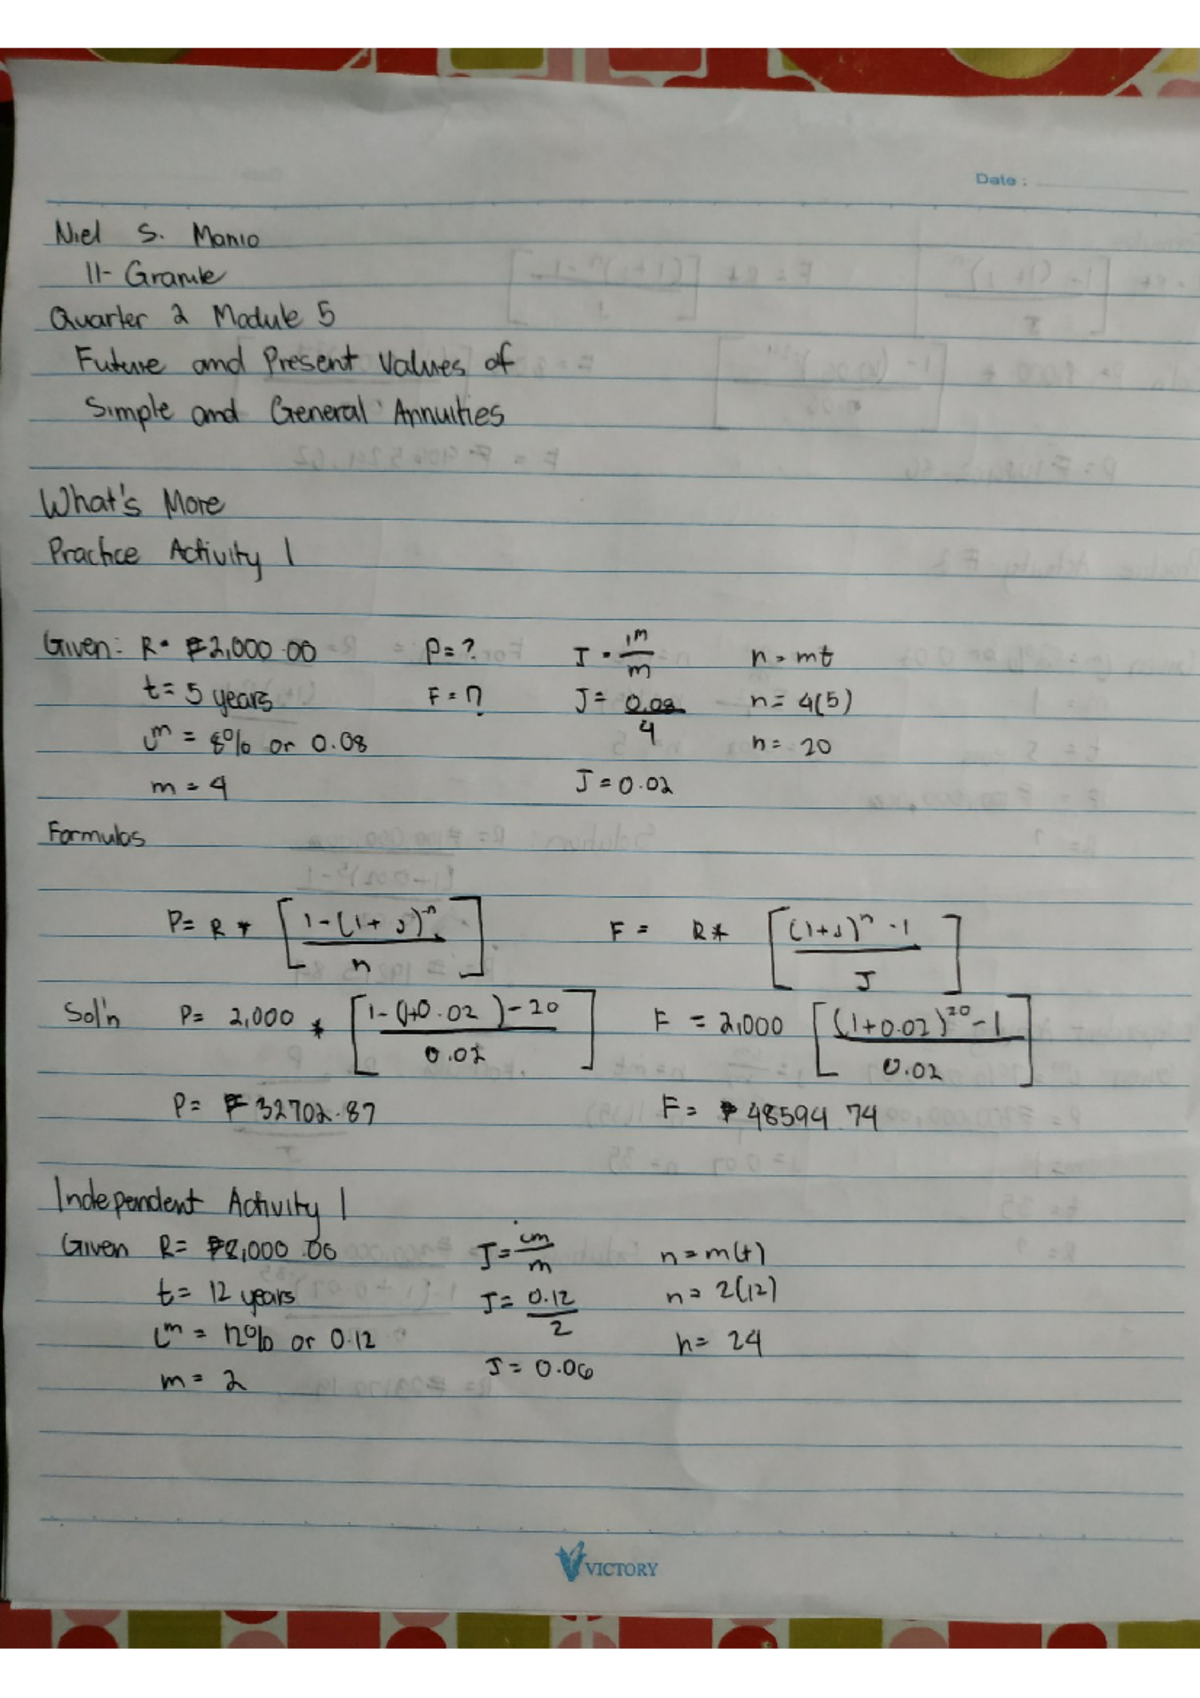 Date :
Niel S. Manio
11-Granule
Quarter 2 Module 5
Future and Present Values of
Simple and General Annuities
What's More
Practice Activity 1
Given: R = ₱2,000.00 P = ? J = im/m n = mt
t = 5 years F = ? J = 0.08/4 n = 4(5)
im = 8% or 0.08 n = 20
m = 4 J = 0.02
Formulas
P = R * [1-(1+J)^-n / n] F = R* [(1+J)^n -1 / J]
Sol'n P = 2,000 * [1-(1+0.02)-20 / 0.02] F = 2,000 [(1+0.02)^20 -1 / 0.02]
P = ₱ 32702.87 F = ₱ 48594.74
Independent Activity 1
Given R = ₱8,000.00 J = im/m n = m(t)
t = 12 years J = 0.12/2 n = 2(12)
im = 12% or 0.12 n = 24
m = 2 J = 0.06
VICTORY